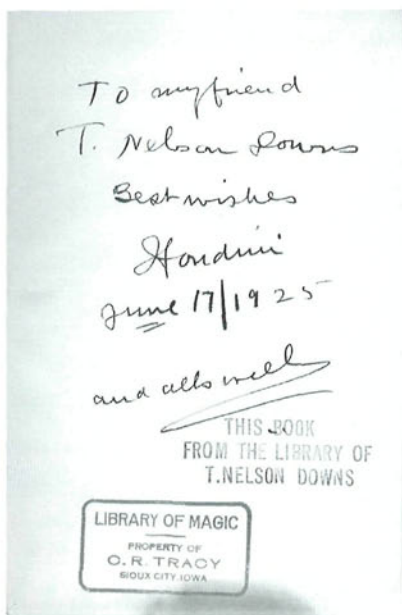 To my friend
T. Nelson Downs
Best wishes
Houdini
June 17/1925
and alls well
THIS BOOK
FROM THE LIBRARY OF
T.NELSON DOWNS
LIBRARY OF MAGIC
PROPERTY OF
C. R. TRACY
SIOUX CITY, IOWA